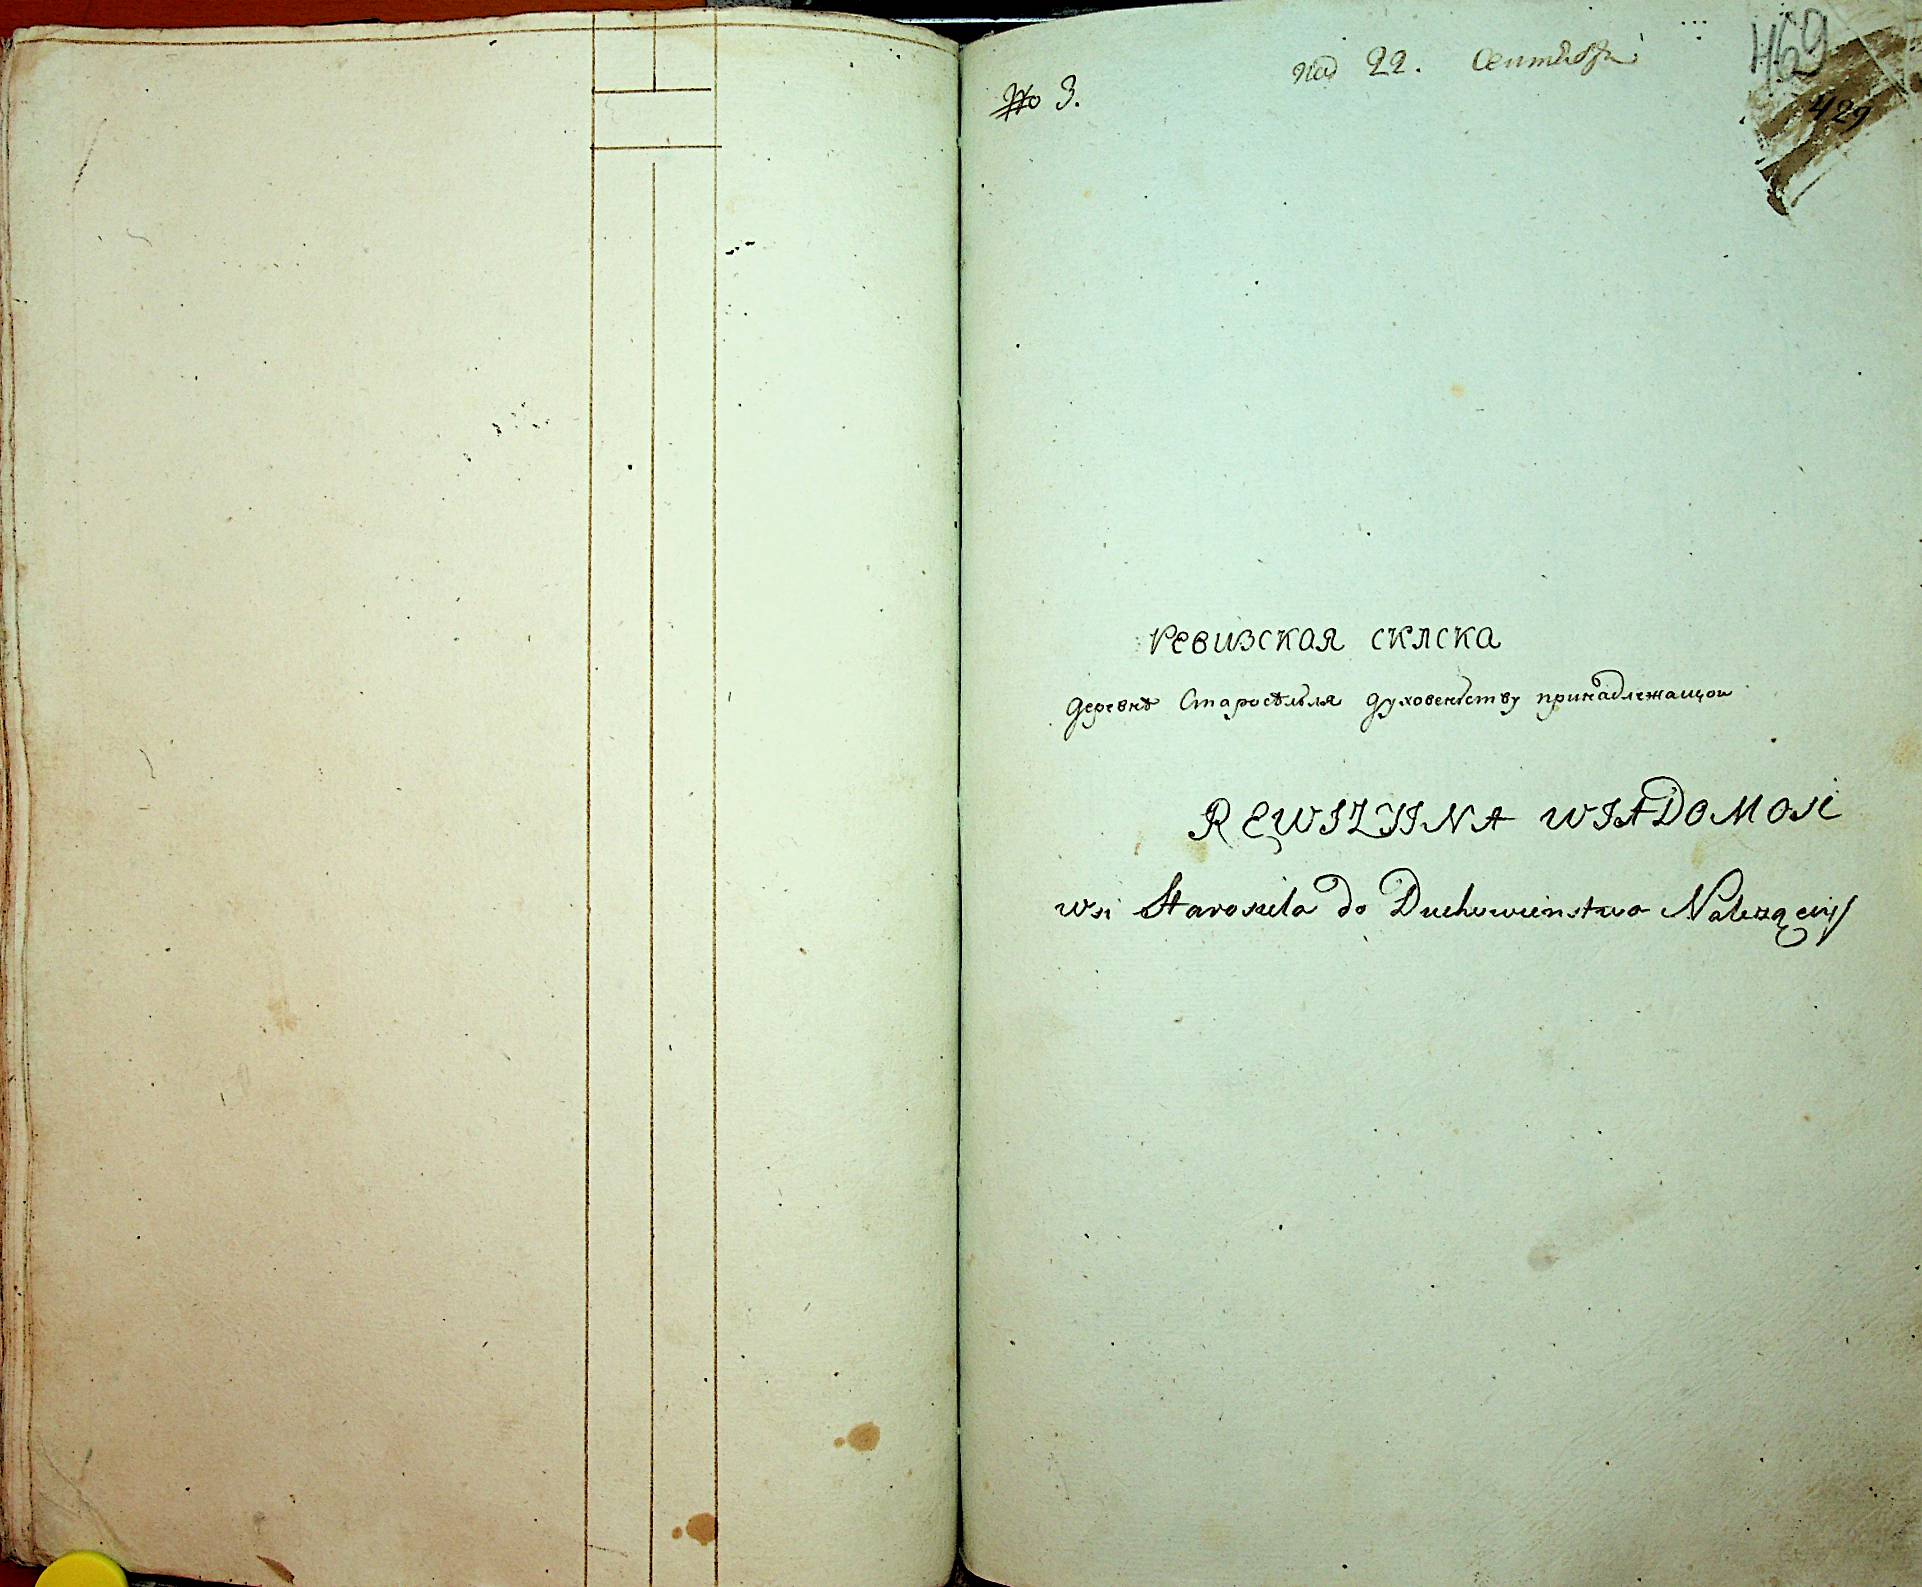 469
под 22. Сентября
№ 3.
429
Ревизская склска
деревнѣ Старосѣлья духовенству принадлежащои
REWIZIINA WIADOMOSC
wsi Starosiela do Duchowienstwa Nalezącey